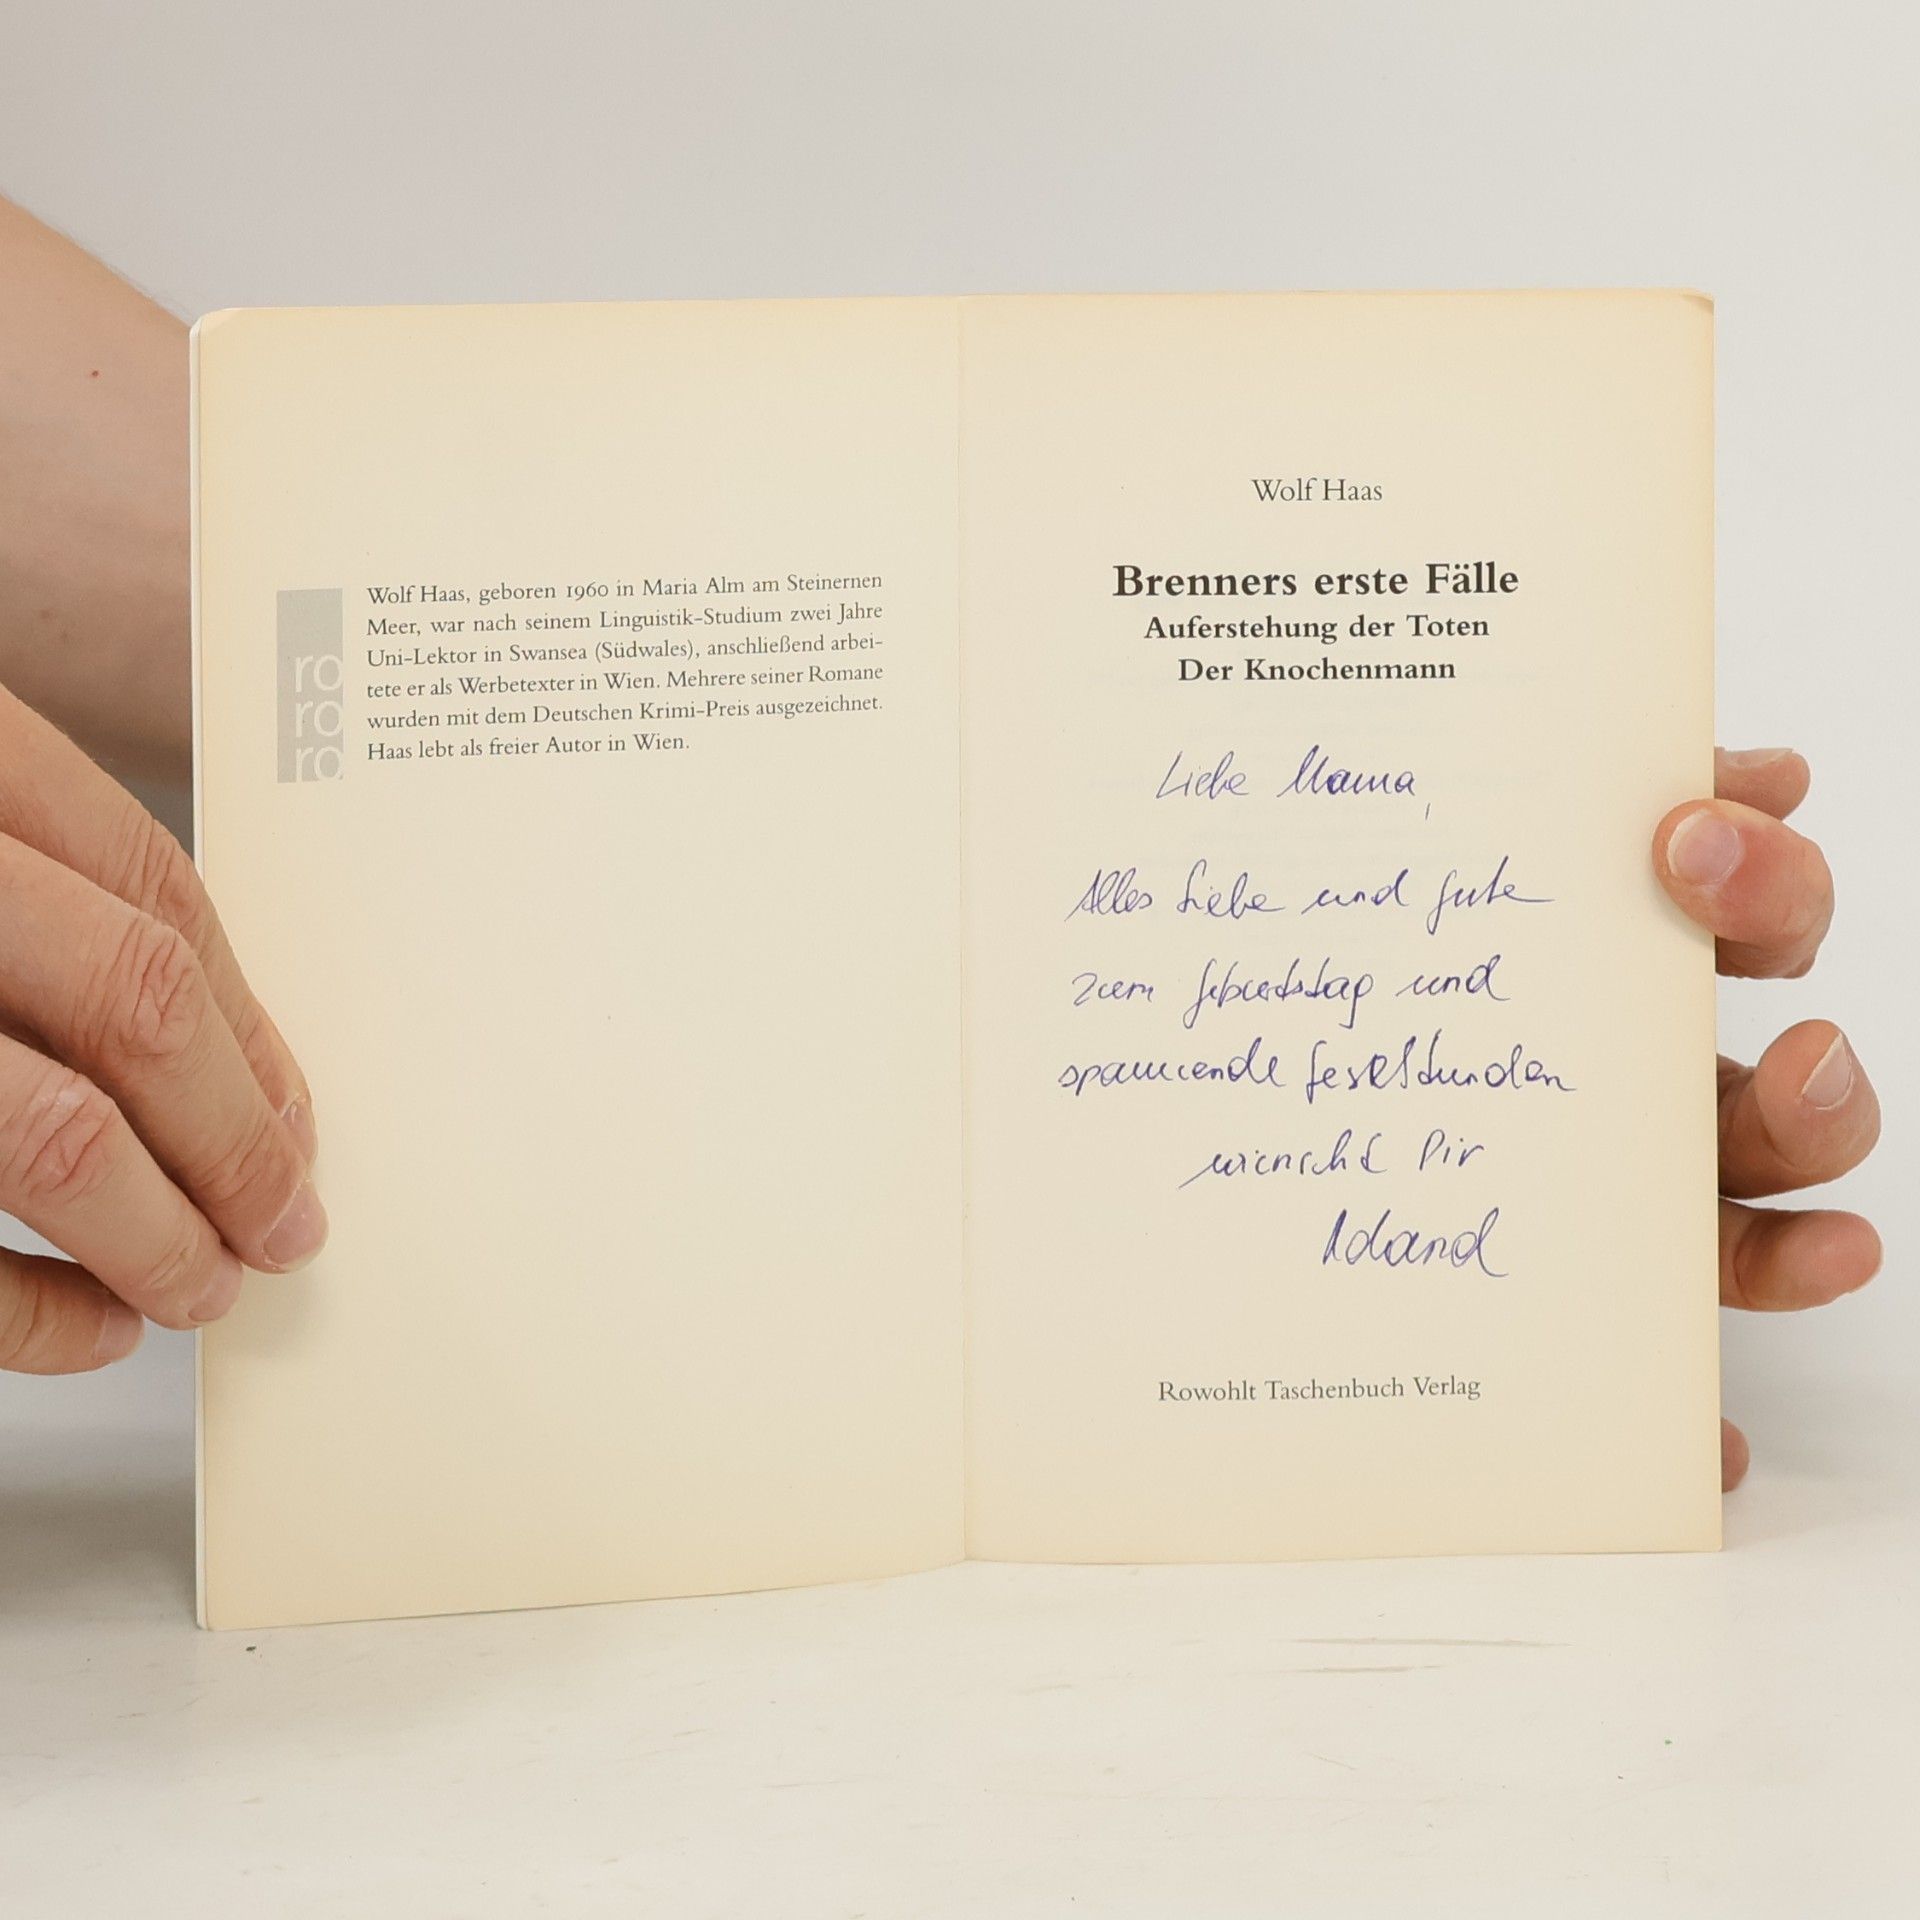 ro
ro
ro
Wolf Haas, geboren 1960 in Maria Alm am Steinernen
Meer, war nach seinem Linguistik-Studium zwei Jahre
Uni-Lektor in Swansea (Südwales), anschließend arbei-
tete er als Werbetexter in Wien. Mehrere seiner Romane
wurden mit dem Deutschen Krimi-Preis ausgezeichnet.
Haas lebt als freier Autor in Wien.
Wolf Haas
Brenners erste Fälle
Auferstehung der Toten
Der Knochenmann
Liebe Mama,
Alles Liebe und Gute
zum Geburtstag und
spannende Lesestunden
wünscht Dir
Roland
Rowohlt Taschenbuch Verlag